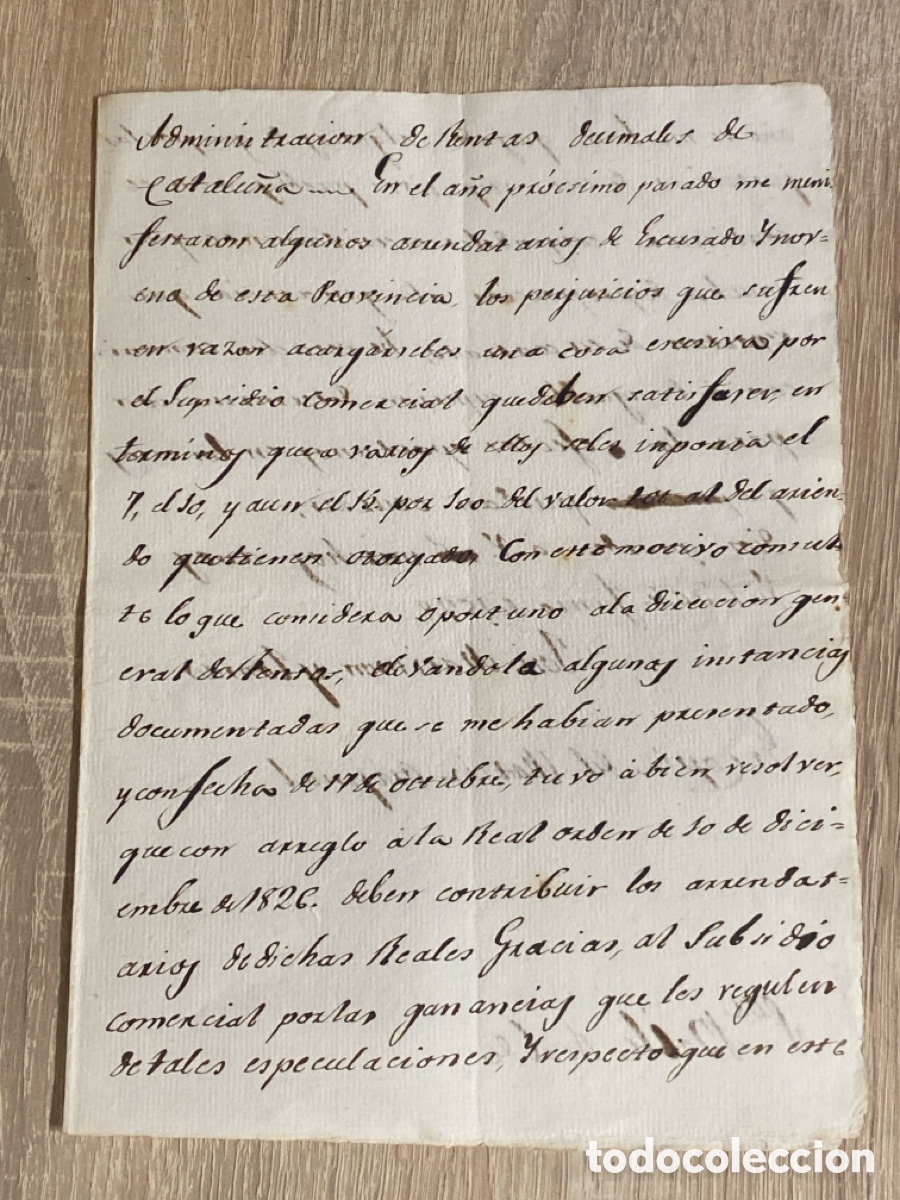 Administracion de Rentas decimales de
Cataluña En el año próesimo pasado me meni
festaron algunos arrendatarios de Escusado Ynov=
eno de esta Provincia, los perjuicios que sufren
en razon acargárseles una cota escesiva por
el Supsidio comercial quedeben satisfaser, en
terminos que a varios de ellos seles inponia el
7, el 10, y aun el 15. por 100 del valor total del arien=
do quetienen otorgado, Con este motivo consult
té lo que considera oportuno ala direccion gen=
eral de Rentas, elevandola algunas instancias
documentadas que se me habian presentado,
y con fecha de 17 de octubre, tuvo á bien resolver,
que con arreglo á la Real orden de 10 de dici=
embre de 1826. deben contribuir los arrendat=
arios dedichas Reales Gracias, al Subsidio
comercial porlas ganancias que les regulen
de tales especulaciones, Y respecto que en este
todocoleccion